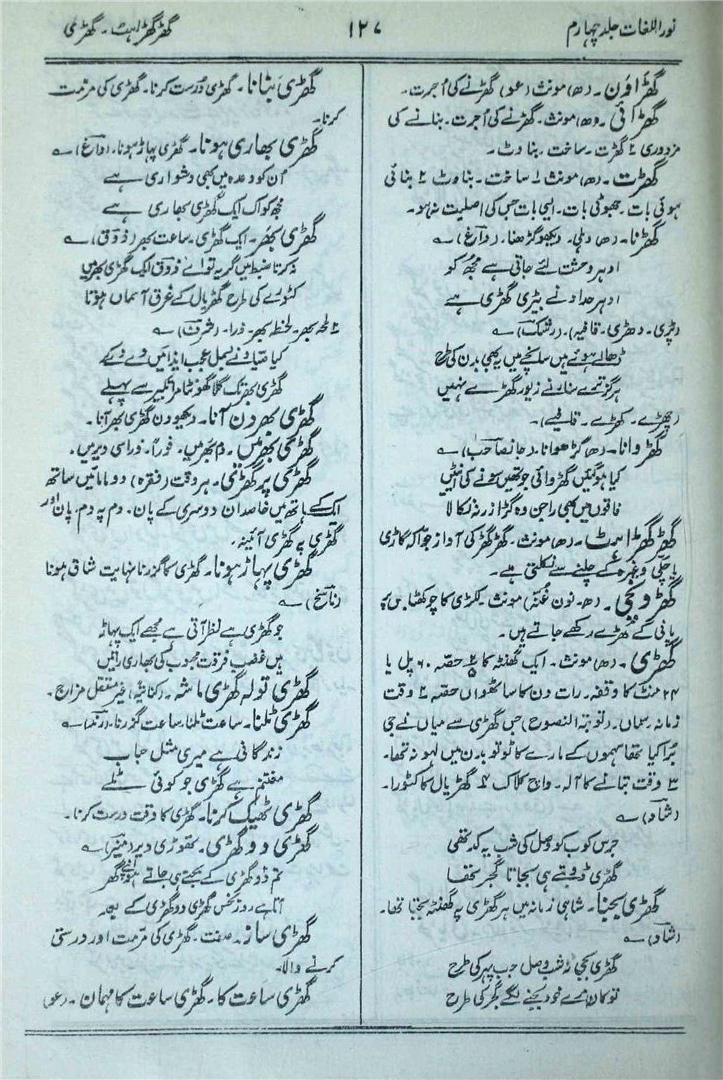 نور اللغات جلد چہارم
۱۲۷
گھڑگھڑاہٹ ۔ گھڑی
گھڑاؤن ۔ (ھ) مونث (عو) گھڑنے کی اُجرت۔
گھڑائی ۔ (ھ) مونث۔ گھڑنے کی اُجرت۔ بنانے کی
مزدوری ۲ گھڑت۔ ساخت۔ بناوٹ۔
گھڑت ۔ (ھ) مونث ۱ ساخت۔ بناوٹ ۲ بنائی
ہوئی بات۔ جھوٹی بات۔ ایسی بات جس کی اصلیت نہ ہو۔
گھڑنا ۔ (ھ) دہلی۔ دیکھو گڑھنا۔ (داغ) ؎
ادہر وحشت لئے جاتی ہے مجھ کو
ادہر حداد نے بیڑی گھڑی ہے
(بڑی۔ دھڑی۔ قافیہ)۔ (رشک) ؎
ڈھالے ہوئے ہیں سانچے میں یہ بھی بدن کی طرح
ہرگز تیرے سنار نے زیور گھڑے نہیں
(بڑے۔ کھڑے۔ قافیے)۔
گھڑوانا ۔ (ھ) گڑھوانا۔ (جانصاحب) ؎
کیا ہو گئیں گھڑوائی جو تھیں سونے کی اینٹیں
فاقوں میں بھی راجن وہ گڑا زر نہ نکالا
گھڑگھڑاہٹ ۔ (ھ) مونث۔ گھڑگھڑ کی آواز جو اکہ گاڑی
یا چکی وغیرہ کے چلنے سے نکلتی ہے۔
گھڑونچی ۔ (ھ۔ نون غنہ) مونث۔ لکڑی کا چوکھٹا جس پر
پانی کے گھڑے رکھے جاتے ہیں۔
گھڑی ۔ (ھ) مونث۔ ایک گھنٹہ کا حصہ ۶۰ پل یا
۲۴ منٹ کا وقفہ۔ رات دن کا ساٹھواں حصہ ۲ وقت
زمانہ۔ سماں۔ (توبۃ النصوح) جس گھڑی سے میاں نے جی
بُرا کیا تھا سہموں کے مارے کاٹو تو بدن میں لہو نہ تھا۔
۳ وقت بتانے کا آلہ۔ واچ کلاک ۴ گھڑیال کا کٹورا۔
(شاد) ؎
جرس کوب کو وصل کی شب یہ کد تھی
گھڑی ڈوبتے ہی بجاتا گجر تھا
گھڑی بجنا ۔ شاہی زمانہ میں ہر گھڑی پہ گھنٹہ بجتا تھا۔
(شاد) ؎
گھڑی بجی نہ شب وصل جب پہر کی طرح
تو کان میرے خود بجنے لگے گجر کی طرح
گھڑی بنانا ۔ گھڑی دُرست کرنا۔ گھڑی کی مرمت
کرنا۔
گھڑی بھاری ہونا ۔ گھڑی پہاڑ ہونا۔ (داغ) ؎
اُن کو وعدہ میں بھی دشواری ہے
مجھ کو اک ایک گھڑی بھاری ہے
گھڑی بھر ۔ ایک گھڑی۔ ساعت بھر (ذوق) ؎
نہ کرتا ضبط میں گریہ تو اے ذوق اک گھڑی بھر میں
کٹورے کی طرح گھڑیال کے غرق آسماں ہوتا
۲ لمحہ بھر۔ لحظہ بھر۔ ذرا۔ (شرف) ؎
کیا صیاد نے بسمل عجب ایذائیں دے دے کے
گھڑی بھر تک گلا گھونٹا مرا تکبیر سے پہلے
گھڑی بھر دن آنا ۔ دیکھو دن گھڑی بھر آنا۔
گھڑی بھر میں ۔ دم بھر میں۔ فوراً۔ ذرا سی دیر میں۔
گھڑی پر گھڑی ۔ ہر وقت (فقرہ) دو مامائیں ساتھ
ایک کے ہاتھ میں خاصدان دوسری کے پان۔ دم پہ دم پان اور
گھڑی پہ گھڑی آئینہ۔
گھڑی پہاڑ ہونا ۔ گھڑی کا گذرنا نہایت شاق ہونا
(ناسخ) ؎
جو گھڑی ہے نظر آتی ہے مجھے ایک پہاڑ
ہیں غضب فرقت محبوب کی بھاری راتیں
گھڑی تولہ گھڑی ماشہ ۔ (کنایۃً) غیر مستقل مزاج۔
گھڑی ٹلنا ۔ ساعت ٹلنا۔ ساعت گذرنا۔ (رند) ؎
زندگانی ہے میری مثل حباب
مغتنم ہے گھڑی جو کوئی ٹلے
گھڑی ٹھیک کرنا ۔ گھڑی کا وقت درست کرنا۔
گھڑی دو گھڑی ۔ تھوڑی دیر (منیر) ؎
تم دو گھڑی کے بجتے ہی جاتے ہو اپنے گھر
آتا ہے روز نحس گھڑی دو گھڑی کے بعد
گھڑی ساز ۔ صفت۔ گھڑی کی مرمت اور درستی
کرنے والا۔
گھڑی ساعت کا ۔ گھڑی ساعت کا مہمان ۔ (عو)